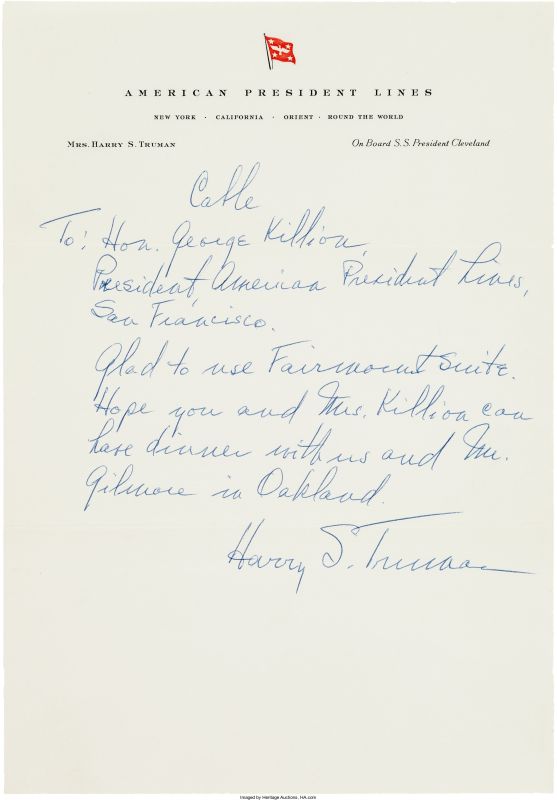 AMERICAN PRESIDENT LINES
NEW YORK · CALIFORNIA · ORIENT · ROUND THE WORLD
MRS. HARRY S. TRUMAN
On Board S.S. President Cleveland
Cable
To: Hon. George Killion,
President, American President Lines,
San Francisco.
Glad to use Fairmount suite.
Hope you and Mrs. Killion can
have dinner with us and Mr.
Gilmore in Oakland.
Harry S. Truman
Imaged by Heritage Auctions, HA.com